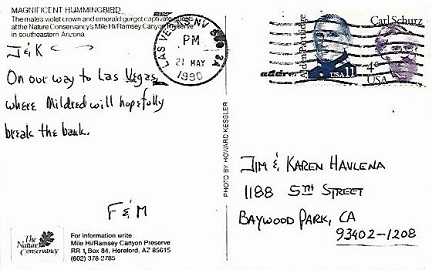 MAGNIFICENT HUMMINGBIRD
The males violet crown and emerald gorget captivate
at the Nature Conservancy's Mile Hi/Ramsey Canyon Preserve
in southeastern Arizona
J & K
On our way to Las Vegas,
where Mildred will hopefully
break the bank.
F & M
The Nature Conservancy
For information write
Mile Hi/Ramsey Canyon Preserve
RR 1, Box 84, Hereford, AZ 85615
(602) 378-2785
PHOTO BY HOWARD KESSLER
LAS VEGAS NV
PM
21 MAY
1990
Alden Partridge
USA 11
Carl Schurz
4c
USA
JIM & KAREN HAVLENA
1188 5TH STREET
BAYWOOD PARK, CA
93402-1208